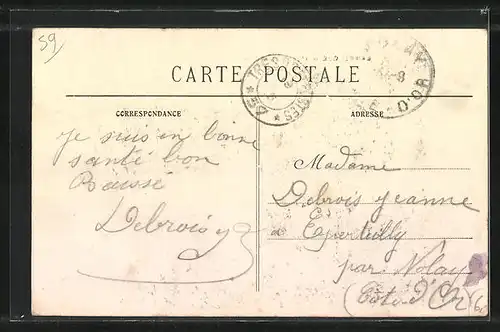 59
CARTE POSTALE
CORRESPONDANCE
ADRESSE
je suis en bonne
santé bon
Baissé
Debrois
Madame
Debrois jeanne
a Epertully
par Nolay
(Côte d'Or)
D'OR